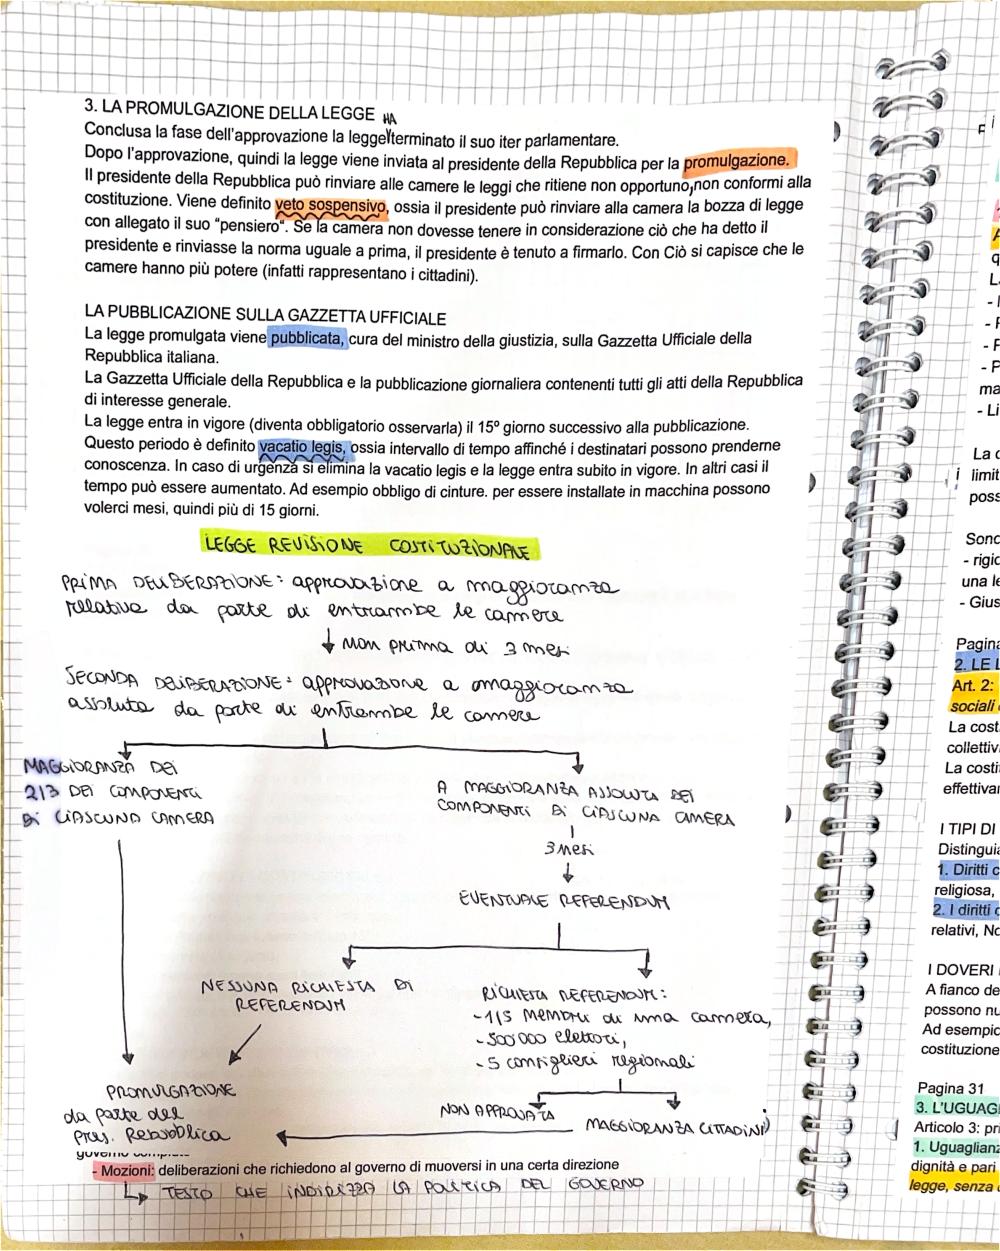 3. LA PROMULGAZIONE DELLA LEGGE
HA
Conclusa la fase dell'approvazione la legge terminato il suo iter parlamentare.
Dopo l'approvazione, quindi la legge viene inviata al presidente della Repubblica per la promulgazione.
Il presidente della Repubblica può rinviare alle camere le leggi che ritiene non opportuno, non conformi alla
costituzione. Viene definito veto sospensivo, ossia il presidente può rinviare alla camera la bozza di legge
con allegato il suo "pensiero". Se la camera non dovesse tenere in considerazione ciò che ha detto il
presidente e rinviasse la norma uguale a prima, il presidente è tenuto a firmarlo. Con Ciò si capisce che le
camere hanno più potere (infatti rappresentano i cittadini).
LA PUBBLICAZIONE SULLA GAZZETTA UFFICIALE
La legge promulgata viene pubblicata, cura del ministro della giustizia, sulla Gazzetta Ufficiale della
Repubblica italiana.
La Gazzetta Ufficiale della Repubblica e la pubblicazione giornaliera contenenti tutti gli atti della Repubblica
di interesse generale.
La legge entra in vigore (diventa obbligatorio osservarla) il 15º giorno successivo alla pubblicazione.
Questo periodo è definito vacatio legis, ossia intervallo di tempo affinché i destinatari possono prenderne
conoscenza. In caso di urgenza si elimina la vacatio legis e la legge entra subito in vigore. In altri casi il
tempo può essere aumentato. Ad esempio obbligo di cinture. per essere installate in macchina possono
volerci mesi, quindi più di 15 giorni.
LEGGE REVISIONE COSTITUZIONALE
PRIMA DELIBERAZIONE: approvazione a maggioranza
relativa da parte di entrambe le camere
non prima di 3 mesi
SECONDA DELIBERAZIONE: approvazione a maggioranza
assoluta da parte di entrambe le camere
MAGGIORANZA DEI
2/3 DEI COMPONENTI
DI CIASCUNA CAMERA
A MAGGIORANZA ASSOLUTA DEI
COMPONENTI DI CIASCUNA CAMERA
3 mesi
EVENTUALE REFERENDUM
NESSUNA RICHIESTA DI
REFERENDUM
RICHIESTA REFERENDUM:
-1/5 membri di una camera,
-500'000 elettori,
-5 consiglieri regionali
NON APPROVATA
MAGGIORANZA CITTADINI
PROMULGAZIONE
da parte del
Pres. Repubblica
- Mozioni: deliberazioni che richiedono al governo di muoversi in una certa direzione
TESTO CHE INDIRIZZA LA POLITICA DEL GOVERNO
La
limit
poss
Sono
- rigid
una le
- Gius
Pagina
2. LE L
Art. 2:
sociali
La cost
collettiv
La costi
effettivar
I TIPI DI
Distingui
1. Diritti c
religiosa,
2. I diritti
relativi, No
I DOVERI
A fianco de
possono nu
Ad esempio
costituzione
Pagina 31
3. L'UGUAG
Articolo 3: pri
1. Uguaglianz
dignità e pari
legge, senza